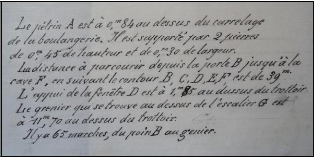 Le pétrin A est à 0,m84 au dessus du carrelage
de la boulangerie. Il est supporté par 2, pierres
de 0m 45 de hauteur et de 0m,30 de largeur.
La distance à parcourir depuis la porte B jusqu'à la
cave F, en suivant le contour B, C, D, E, F est de 39m.
L'appui de la fenêtre D est à 1,m85 au dessus du trottoir
Le grenier qui se trouve au dessus de l'escalier G est
à 11m,70 au dessus du trottoir.
Il y a 65 marches, du poin B au grenier.